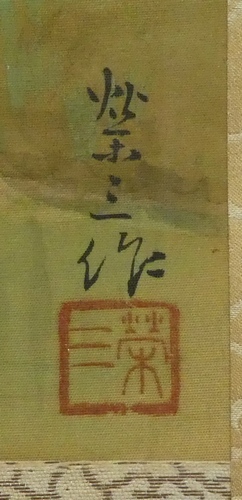 榮三作
榮三